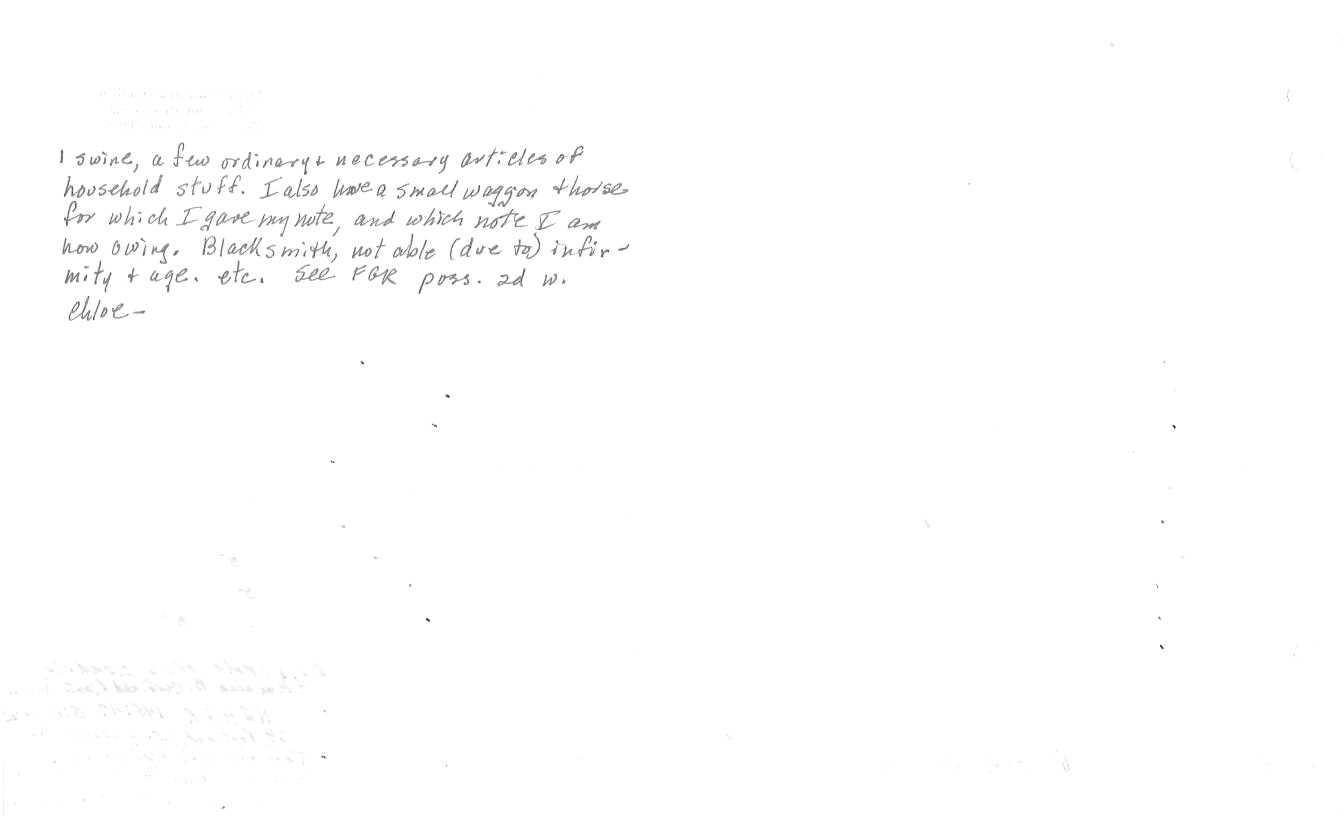 1 swine, a few ordinary + necessary articles of
household stuff. I also have a small waggon + horse
for which I gave my note, and which note I am
now owing. Blacksmith, not able (due to) infir-
mity + age. etc. See FGR poss. 2d w.
Chloe-